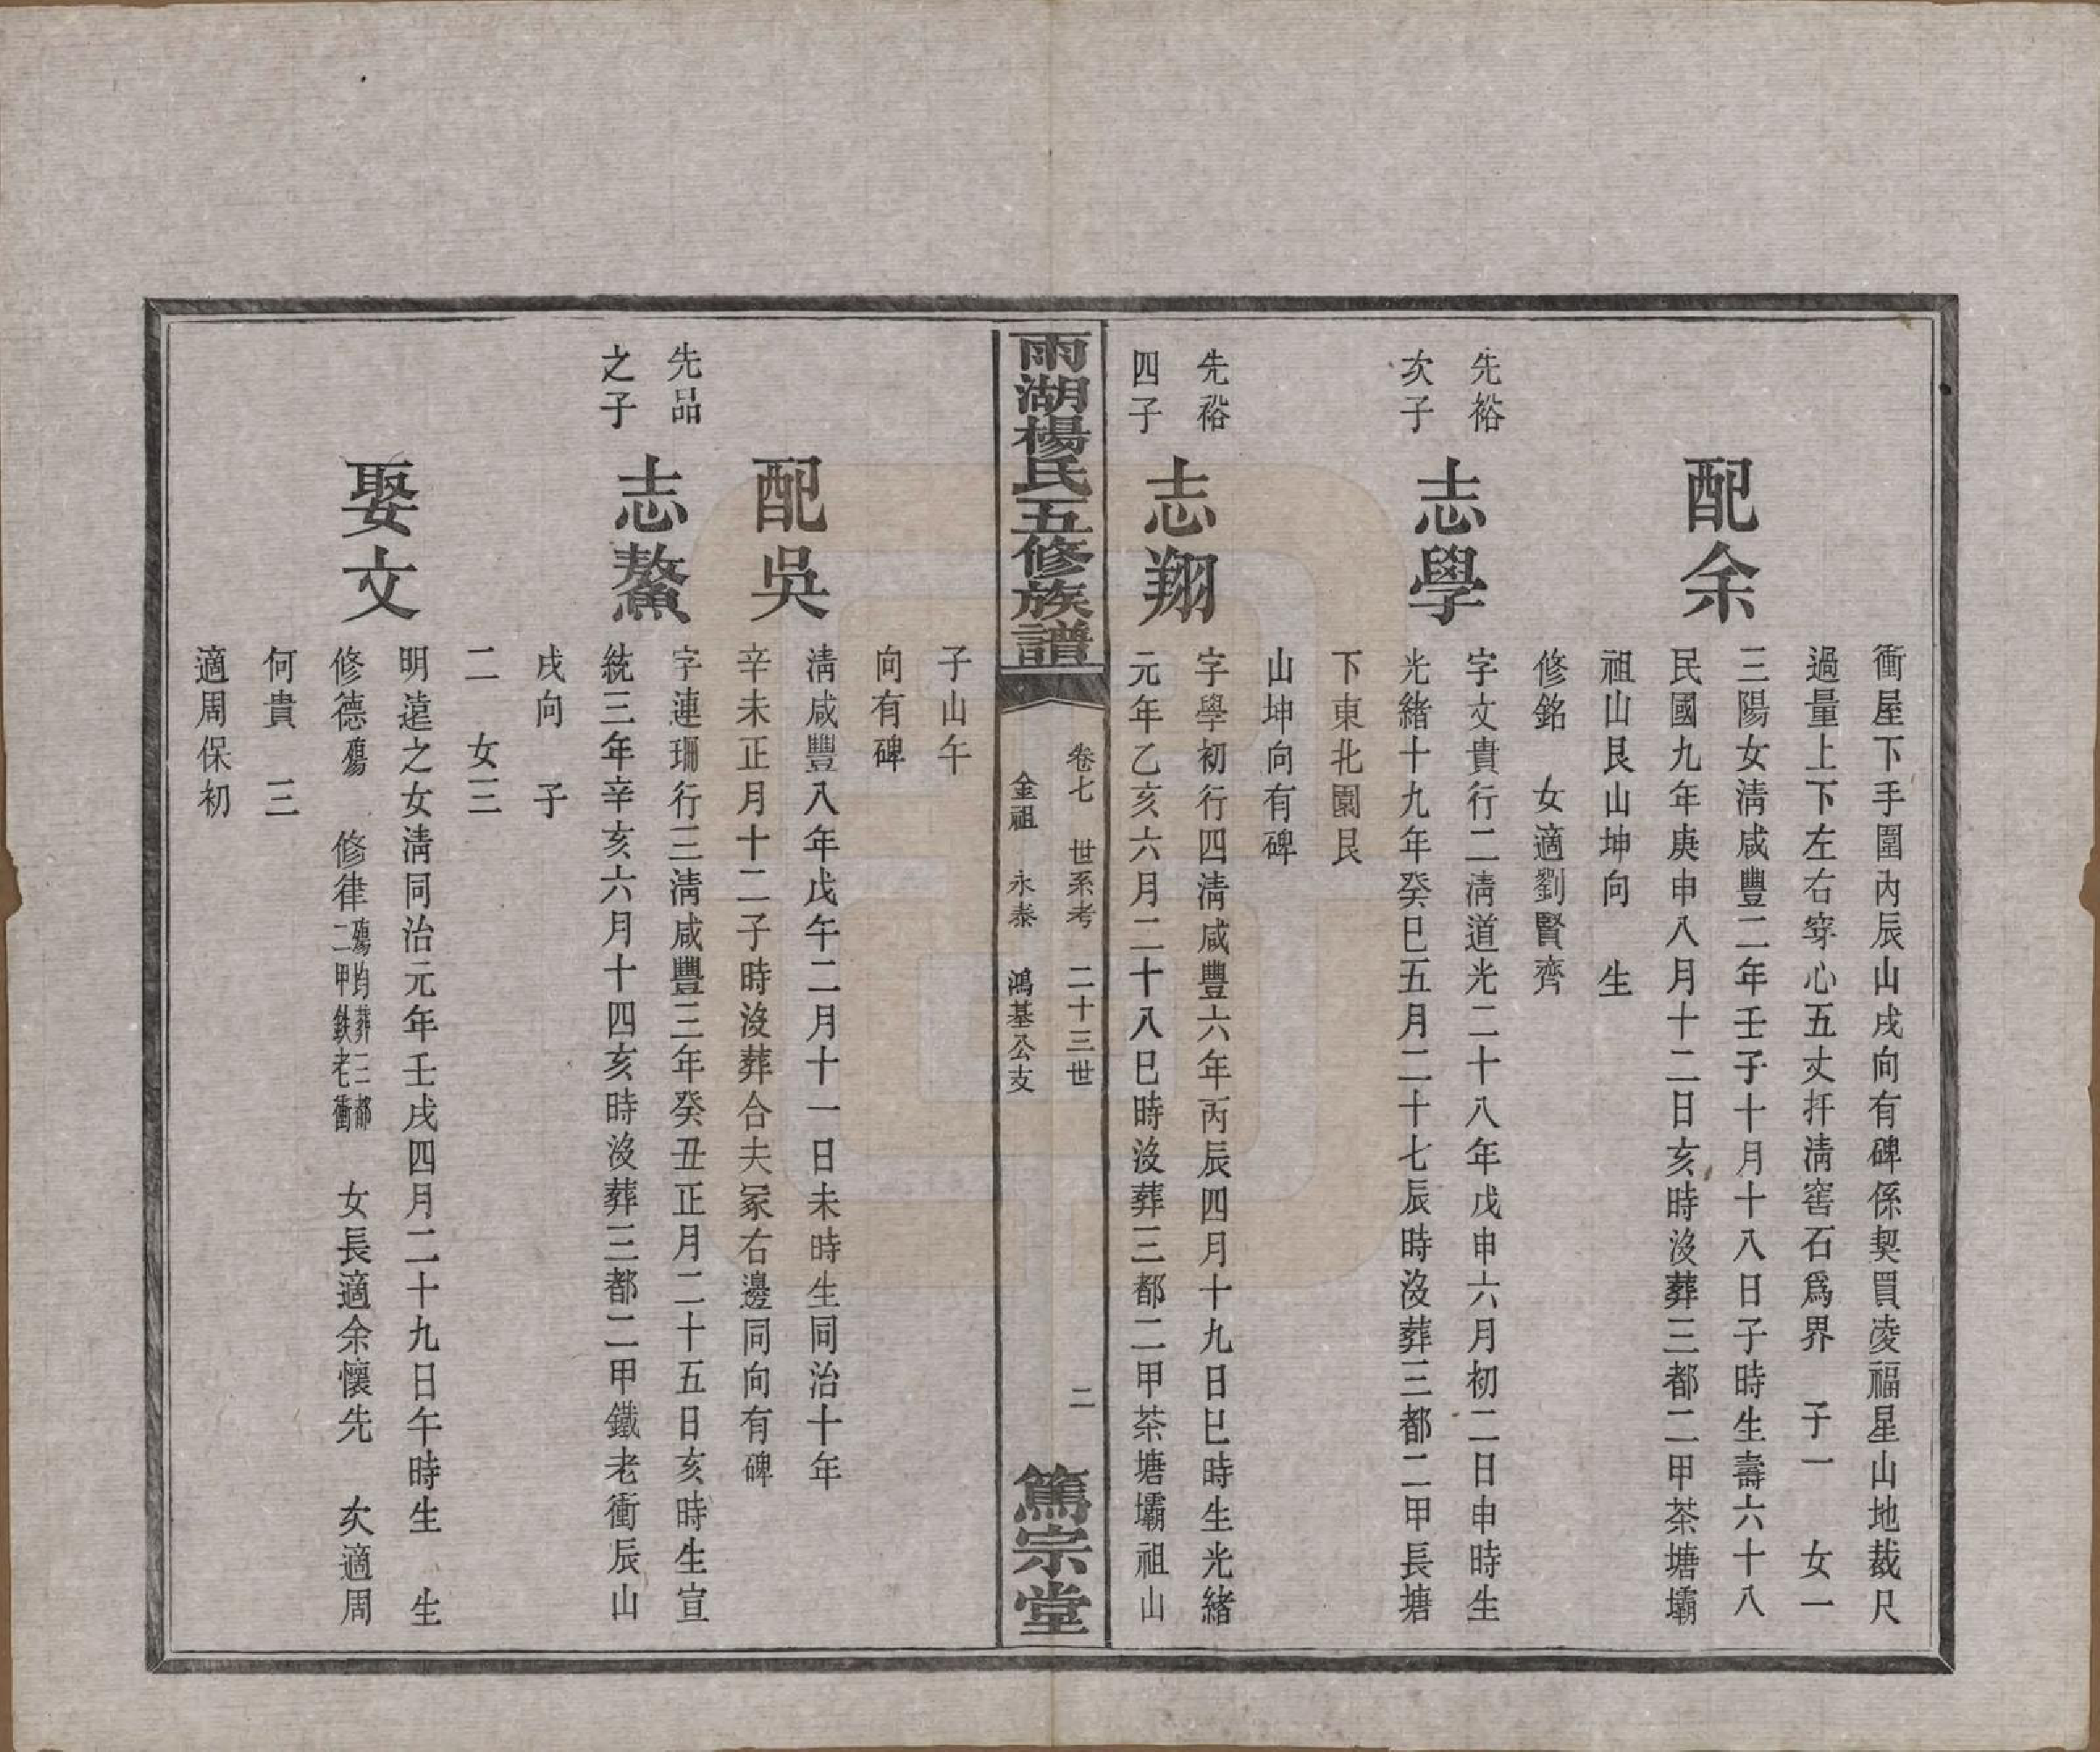 衝屋下手圍內辰山戌向有碑係契買凌福星山地裁尺
過量上下左右穿心五丈扦清窖石爲界 子一 女一
配余
三陽女淸咸豐二年壬子十月十八日子時生壽六十八
民國九年庚申八月十二日亥時沒葬三都二甲茶塘壩
祖山艮山坤向 生
修銘 女適劉賢齊
先裕
次子
志學
字文貴行二淸道光二十八年戊申六月初二日申時生
光緒十九年癸巳五月二十七辰時沒葬三都二甲長塘
下東北園艮
山坤向有碑
先裕
四子
志翔
字學初行四淸咸豐六年丙辰四月十九日巳時生光緒
元年乙亥六月二十八巳時沒葬三都二甲茶塘壩祖山
雨湖楊氏五修族譜
卷七 世系考 二十三世 二
金祖 永泰 鴻基公支
篤宗堂
子山午
向有碑
配吳
淸咸豐八年戊午二月十一日未時生同治十年
辛未正月十二子時沒葬合夫冢右邊同向有碑
先品
之子
志鰲
字連珊行三淸咸豐三年癸丑正月二十五日亥時生宣
統三年辛亥六月十四亥時沒葬三都二甲鐵老衝辰山
戌向 子
二 女三
娶文
明遠之女淸同治元年壬戌四月二十九日午時生 生
修德殤 修律殤均葬三都二甲鉄老衝 女長適余懷先 次適周
何貴 三
適周保初